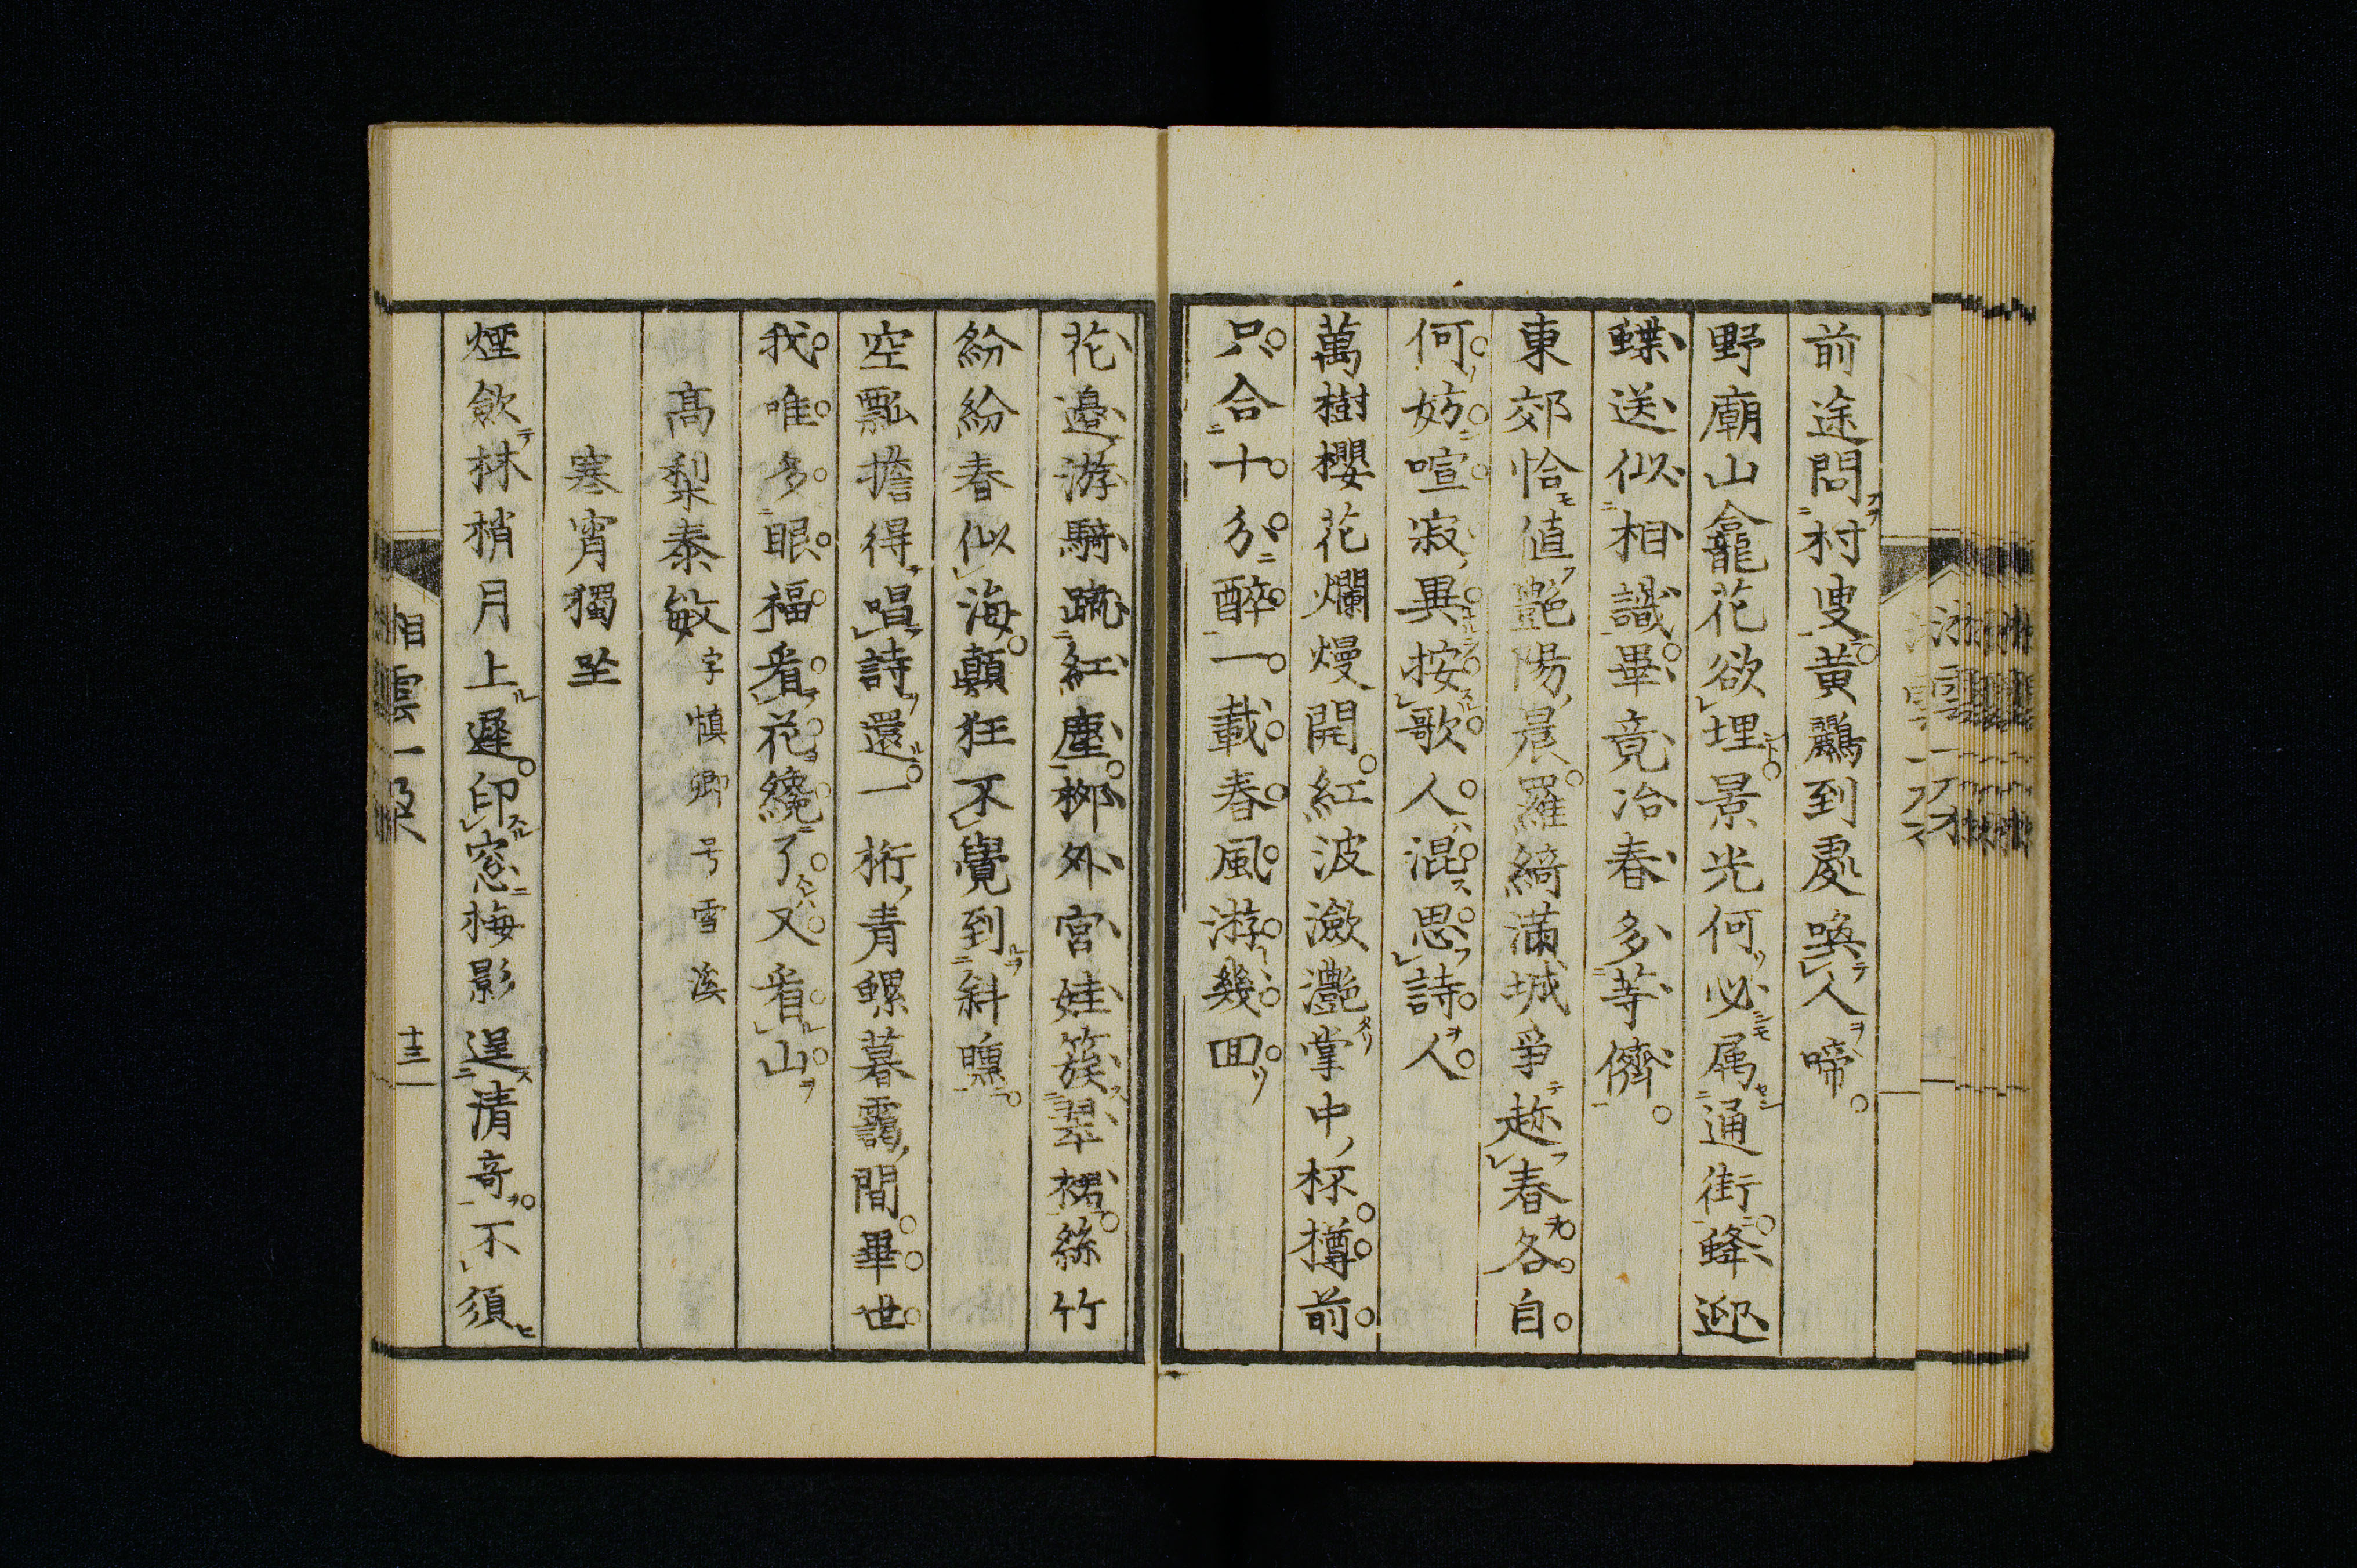 前途問村叟黄鸝到處喚人啼
野廟山龕花欲埋景光何必属通街蜂迎
蝶送似相識畢竟冶春多等儕
東郊恰値艶陽晨羅綺滿城爭趂春各自
何妨喧寂異按歌人混思詩人
萬樹櫻花爛熳開紅波瀲灔掌中杯樽前
只合十分醉一載春風游幾回
花邊游騎蹴紅塵柳外宮娃簇翠裙絲竹
紛紛春似海顛狂不覺到斜曛
空瓢擔得唱詩還一桁青螺暮靄間畢世
我唯多眼福看花纔了又看山
高梨泰敏字愼卿号雪溪
寒宵獨坐
煙歛林梢月上遲印窓梅影逞清奇不須
湘雲一
十三